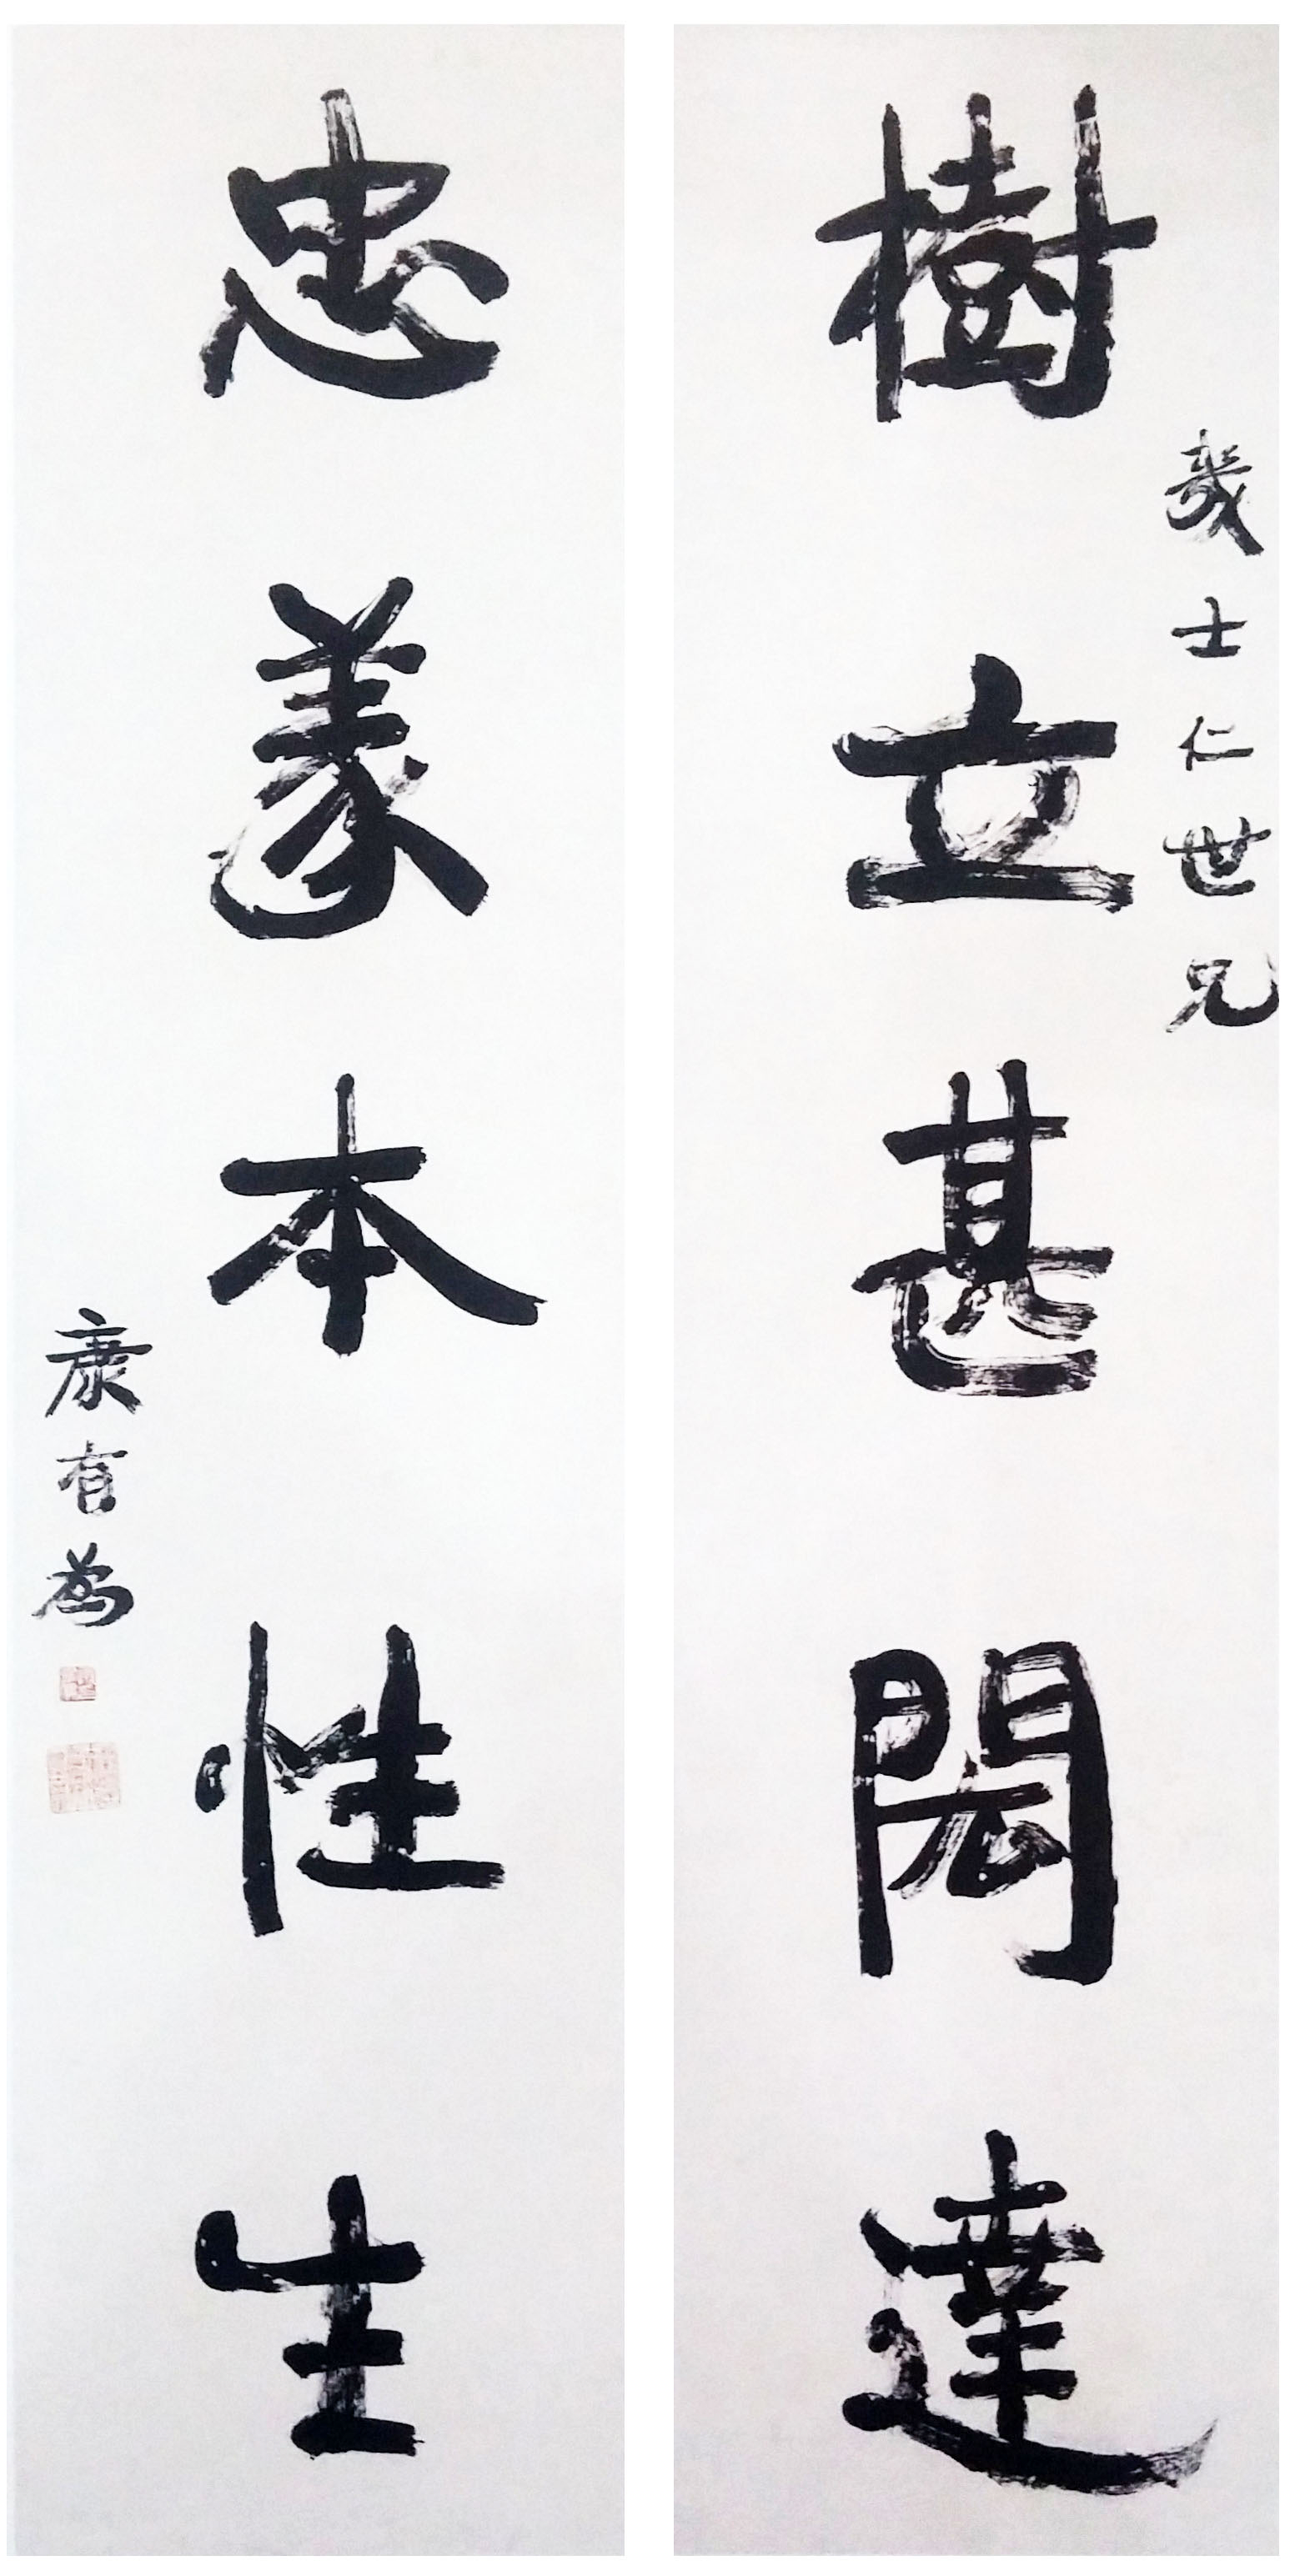 幾士仁世兄
樹立甚閎達
忠義本性生
康有為